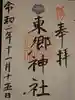 奉拝
東郷神社
令和二年十一月十五日